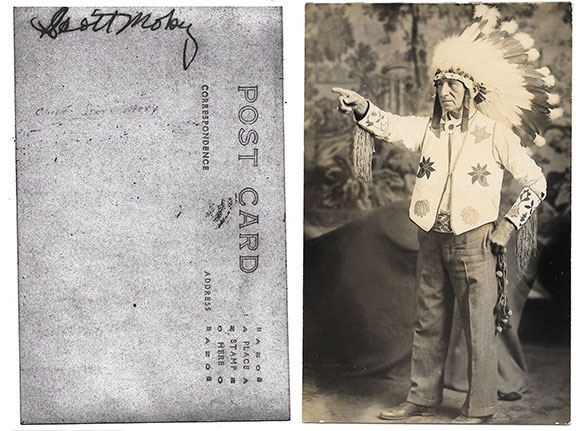 Scott Moby
Chief
POST CARD
CORRESPONDENCE
ADDRESS
PLACE
STAMP
HERE